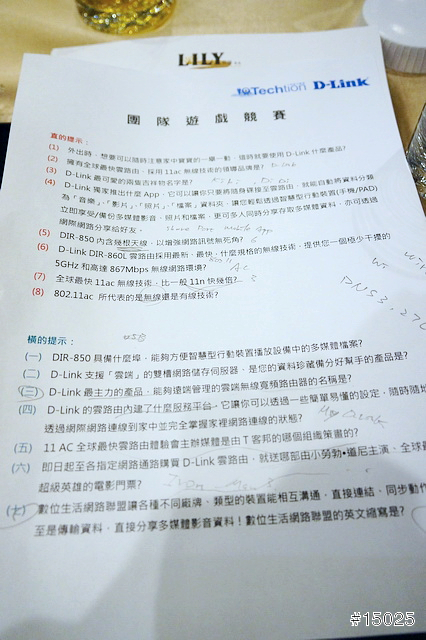 LILY
Techtion D-Link
團隊遊戲競賽
直的提示：
(1) 外出時，想要可以隨時注意家中寶寶的一舉一動，這時就要使用 D-Link 什麼產品?
(2) 擁有全球最快雲路由，採用 11ac 無線技術的領導品牌是? D-Link
(3) D-Link 最可愛的兩隻吉祥物名字是?
(4) D-Link 獨家推出什麼 App，它可以讓你只要將隨身碟接至雲路由，就能自動將資料分類
為「音樂」、「影片」、「照片」、「檔案」資料夾，讓您輕鬆透過智慧型行動裝置(手機/PAD)
立即享受/備份多媒體影音、照片和檔案，更可多人同時分享存取多媒體資料，亦可透過
網際網路分享給好友。 Share Port Mobile App
(5) DIR-850 內含幾根天線，以增強網路訊號無死角? 6
(6) D-Link DIR-860L 雲路由採用最新、最快、什麼規格的無線技術，提供您一個極少干擾的
5GHz 和高達 867Mbps 無線網路環境? AC
(7) 全球最快 11ac 無線技術，比一般 11n 快幾倍? 3
(8) 802.11ac 所代表的是無線還是有線技術?
USB
橫的提示：
(一) DIR-850 具備什麼埠，能夠方便智慧型行動裝置播放設備中的多媒體檔案?
(二) D-Link 支援「雲端」的雙槽網路儲存伺服器，是您的資料珍藏備分好幫手的產品是?
(三) D-Link 最主力的產品，能夠遠端管理的雲端無線寬頻路由器的名稱是?
(四) D-Link 的雲路由內建了什麼服務平台，它讓你可以透過一些簡單易懂的設定，隨時隨地
透過網際網路連線到家中並完全掌握家裡網路連線的狀態? My DLink
(五) 11 AC 全球最快雲路由體驗會主辦媒體是由 T 客邦的哪個組織策畫的?
(六) 即日起至各指定網路通路購買 D-Link 雲路由，就送哪部由小勞勃•道尼主演、全球
超級英雄的電影門票? Iron Man 3
(七) 數位生活網路聯盟讓各種不同廠牌、類型的裝置能相互溝通，直接連結，同步動作
至是傳輸資料，直接分享多媒體影音資料！數位生活網路聯盟的英文縮寫是?
#15025